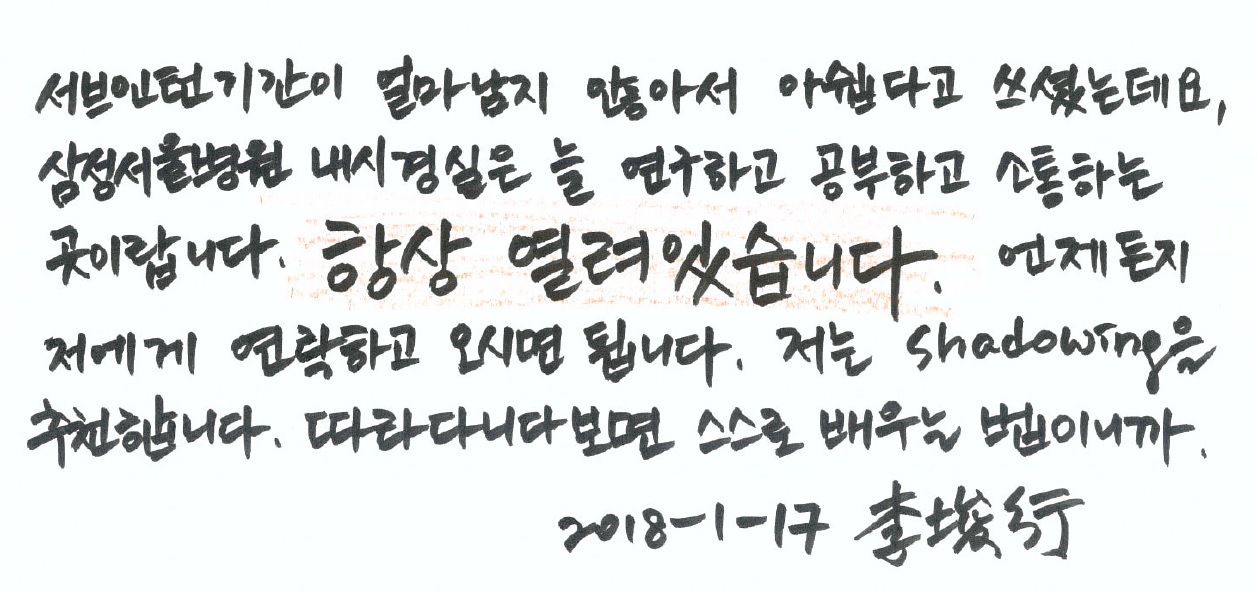 서브인턴기간이 얼마남지 않아서 아쉽다고 쓰셨는데요,
삼성서울병원 내시경실은 늘 연구하고 공부하고 소통하는
곳이랍니다. 항상 열려있습니다. 언제든지
저에게 연락하고 오시면 됩니다. 저는 shadowing을
추천합니다. 따라다니다보면 스스로 배우는 법이니까.
2018-1-17 李埈行